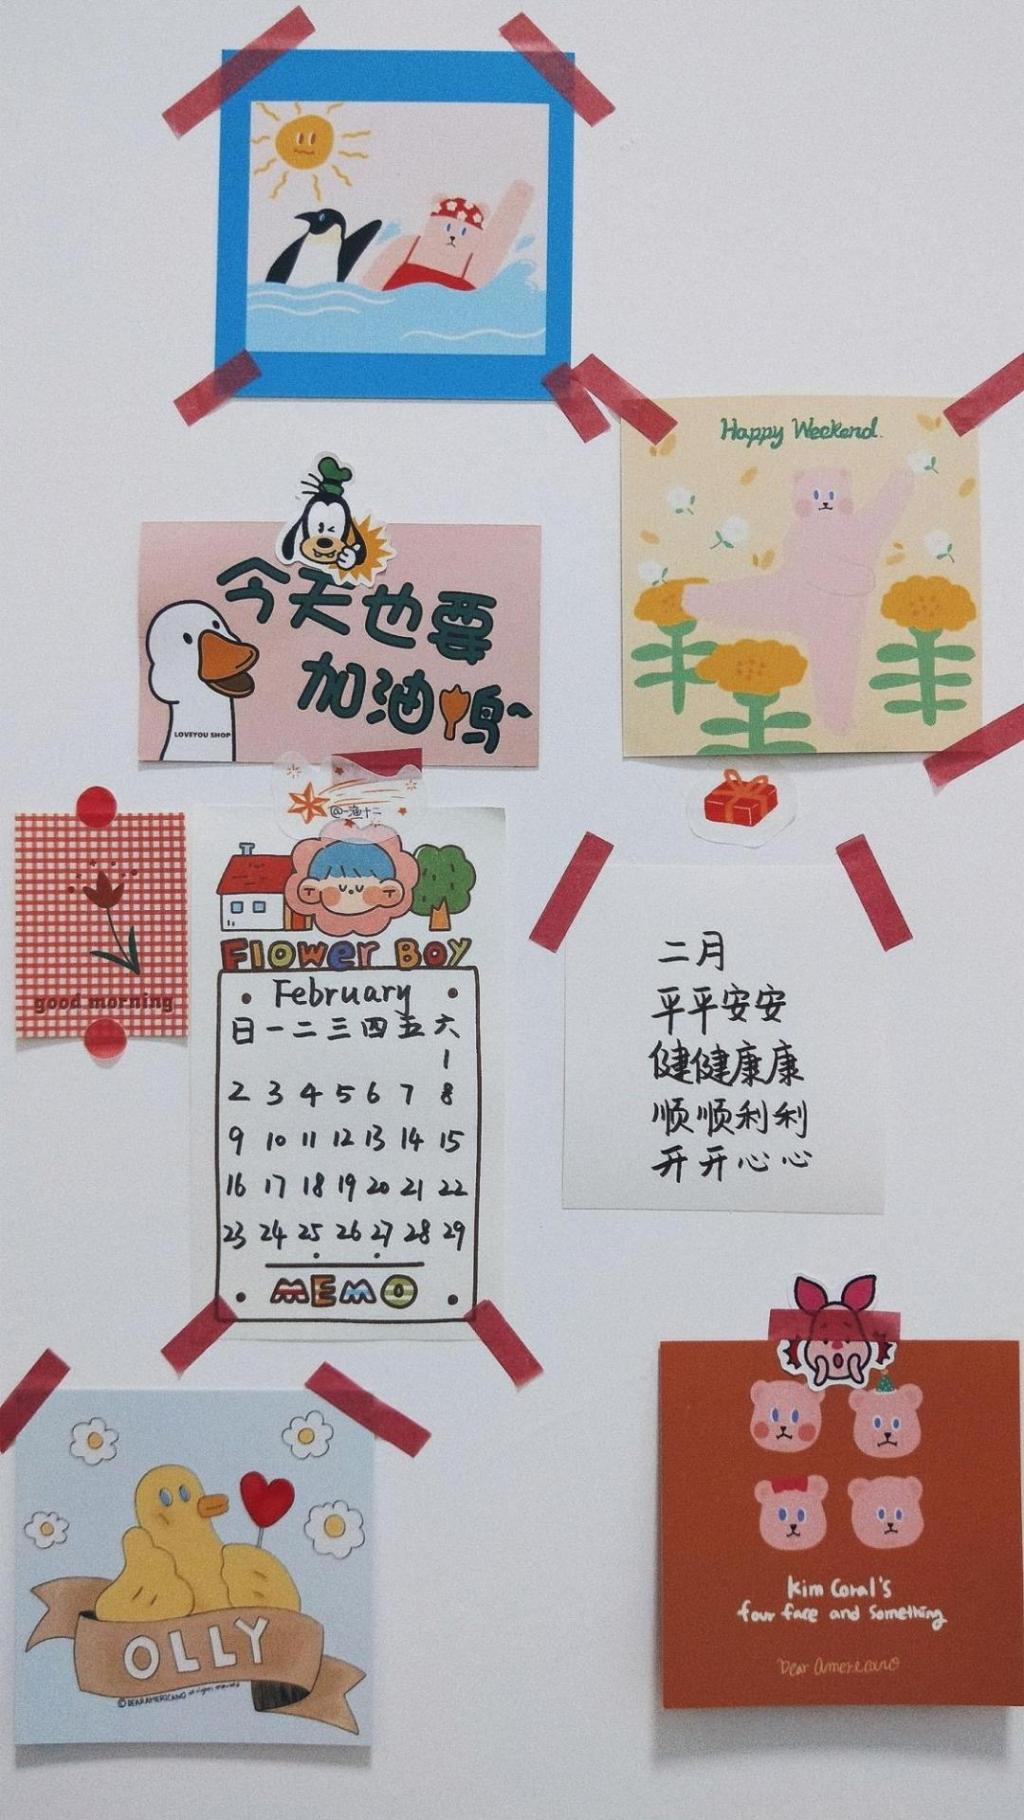 Happy Weekend.
今天也要
加油鸭~
LOVEYOU SHOP
@一渔十二
good morning
FLOWER BOY
February
日 一 二 三 四 五 六
1
2 3 4 5 6 7 8
9 10 11 12 13 14 15
16 17 18 19 20 21 22
23 24 25 26 27 28 29
MEMO
二月
平平安安
健健康康
顺顺利利
开开心心
OLLY
©DEARAMERICANO all rights reserved
Kim Coral's
four face and something
Dear Americano